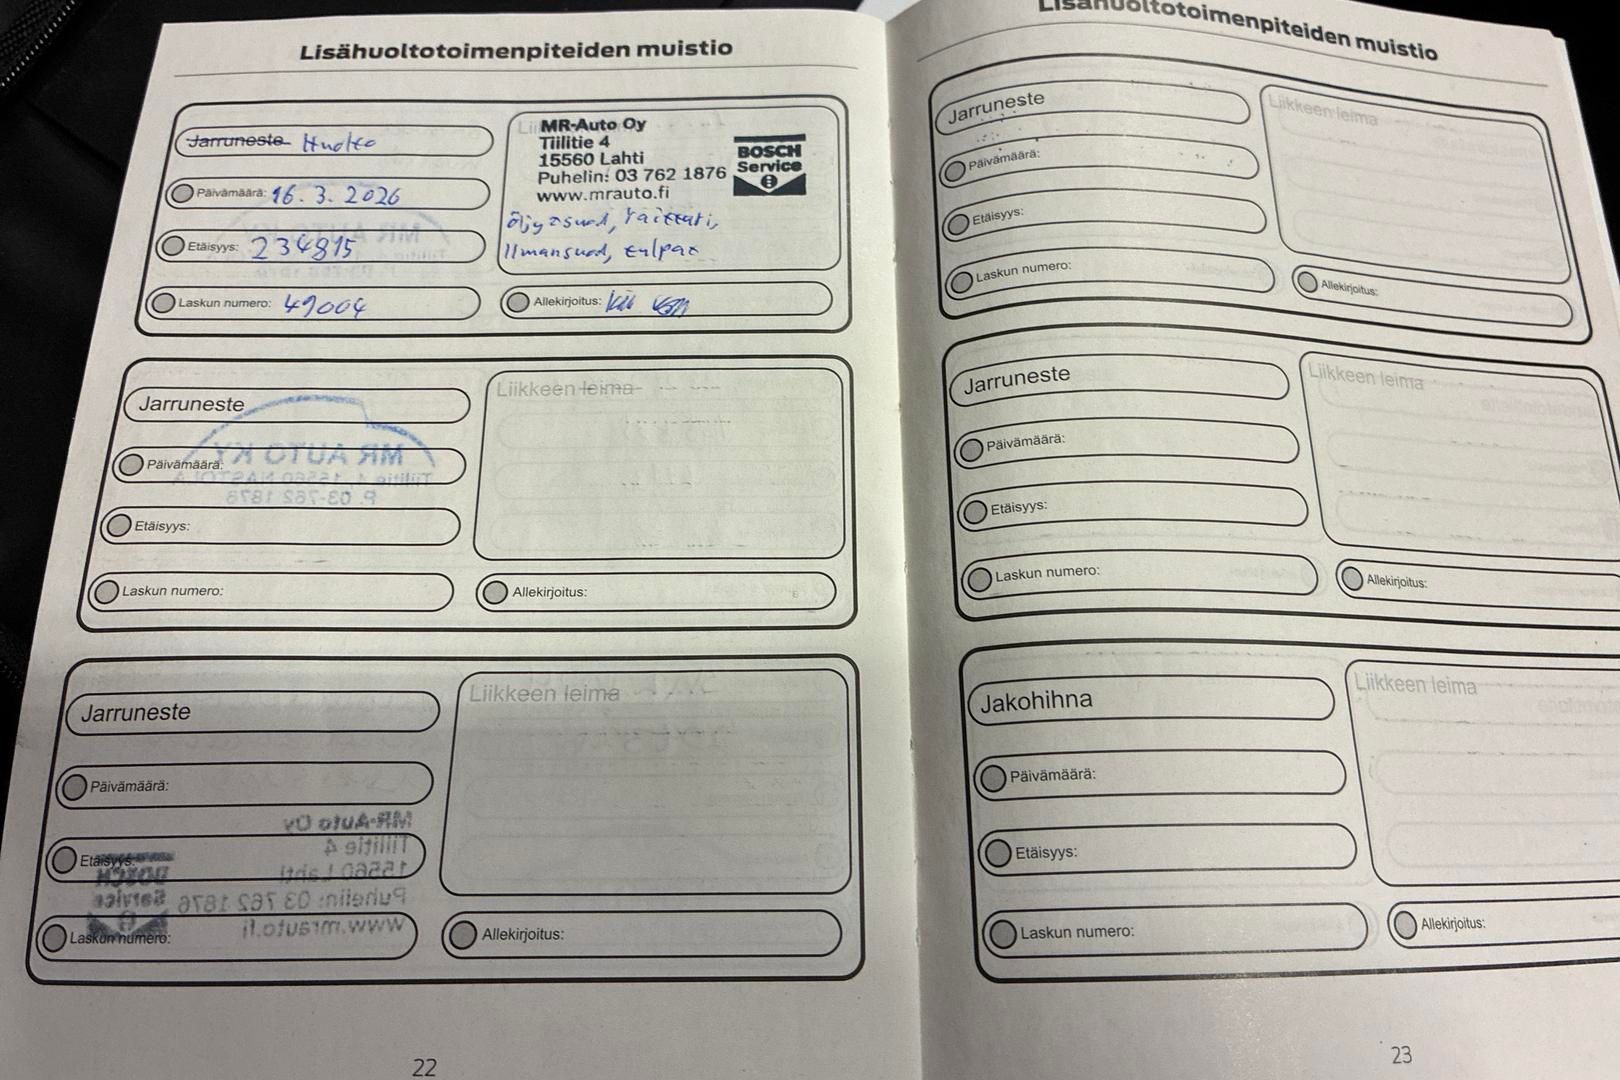 Lisähuoltotoimenpiteiden muistio
Jarruneste Huolto
Päivämäärä: 16.3.2026
Etäisyys: 234815
Laskun numero: 49004
MR-Auto Oy
Tiilitie 4
15560 Lahti
Puhelin: 03 762 1876
www.mrauto.fi
BOSCH
Service
öljy+suod, raitxari,
Ilmansuod, tulpat
Allekirjoitus:
Jarruneste
Päivämäärä:
Etäisyys:
Laskun numero:
Liikkeen leima
Allekirjoitus:
MR AUTO KY
Tiilitie 4, 15560 NASTOLA
P. 03-762 1876
Jarruneste
Päivämäärä:
Etäisyys:
Laskun numero:
Liikkeen leima
Allekirjoitus:
MR-Auto Oy
Tiilitie 4
15560 Lahti
Puhelin: 03 762 1876
www.mrauto.fi
BOSCH
Service
22
Lisähuoltotoimenpiteiden muistio
Jarruneste
Päivämäärä:
Etäisyys:
Laskun numero:
Liikkeen leima
Allekirjoitus:
Jarruneste
Päivämäärä:
Etäisyys:
Laskun numero:
Liikkeen leima
Allekirjoitus:
Jakohihna
Päivämäärä:
Etäisyys:
Laskun numero:
Liikkeen leima
Allekirjoitus:
23